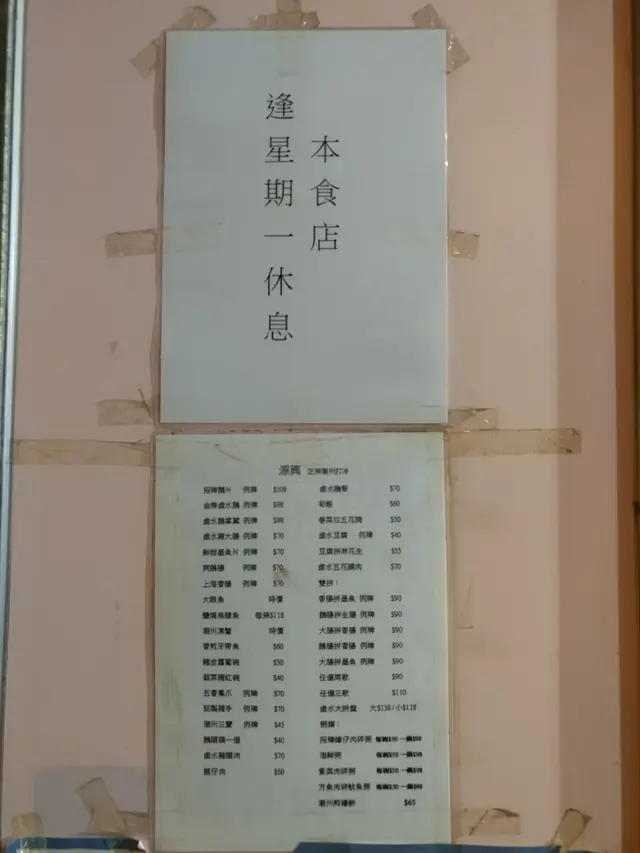 本食店
逢星期一休息
源興 正宗潮州打冷
招牌鵝片 例牌 $108
金牌鹵水鵝 例牌 $98
鹵水鵝掌翼 例牌 $98
鹵水豬大腸 例牌 $70
鮮甜墨魚片 例牌 $70
例牌 $70
上海香腸 例牌 $70
大眼魚 時價
鹽燒烏頭魚 每條$118
潮州凍蟹 時價
香煎牙帶魚 $60
豬皮蘿蔔碗 $50
韭菜豬紅碗 $40
五香鳳爪 例牌 $70
豬手 例牌 $70
潮州三寶 例牌 $45
鵝頭頸一個 $40
鹵水豬頭肉 $70
蠔仔肉 $50
鹵水鵝腎 $70
$60
五花腩 $50
鹵水豆腐 例牌 $40
豆腐拼淋花生 $55
鹵水五花腩肉 $70
雙拼：
香腸拼墨魚 例牌 $90
鵝腸拼生腸 例牌 $90
大腸拼香腸 例牌 $90
鵝腸拼香腸 例牌 $90
大腸拼墨魚 例牌 $90
任選兩款 $90
任選三款 $110
鹵水大拼盤 大$138/小$118
粥類：
招牌蠔仔肉碎粥 每碗$50
海鮮粥 每碗$50
紫菜肉碎粥 每碗$50
方魚肉碎魷魚粥 每碗$50
潮州煎蠔餅 $65